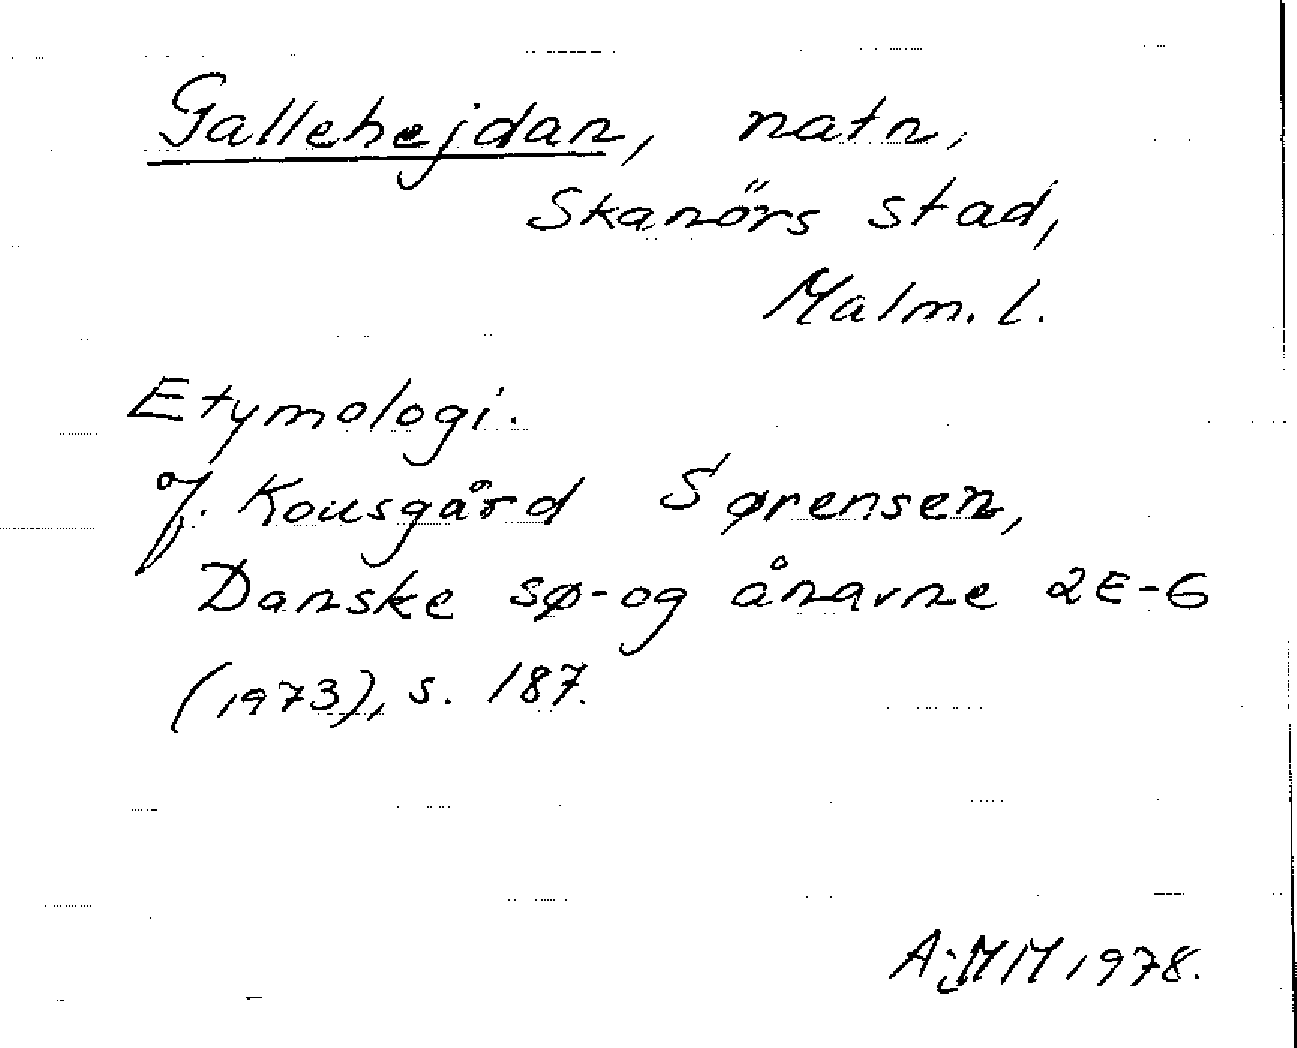 Gallehejdan, natn,
Skanörs stad,
Malm. l.
Etymologi.
J. Kousgård Sørensen,
Danske sø- og ånavne 2E-G
(1973), s. 187.
A:MM 1978.